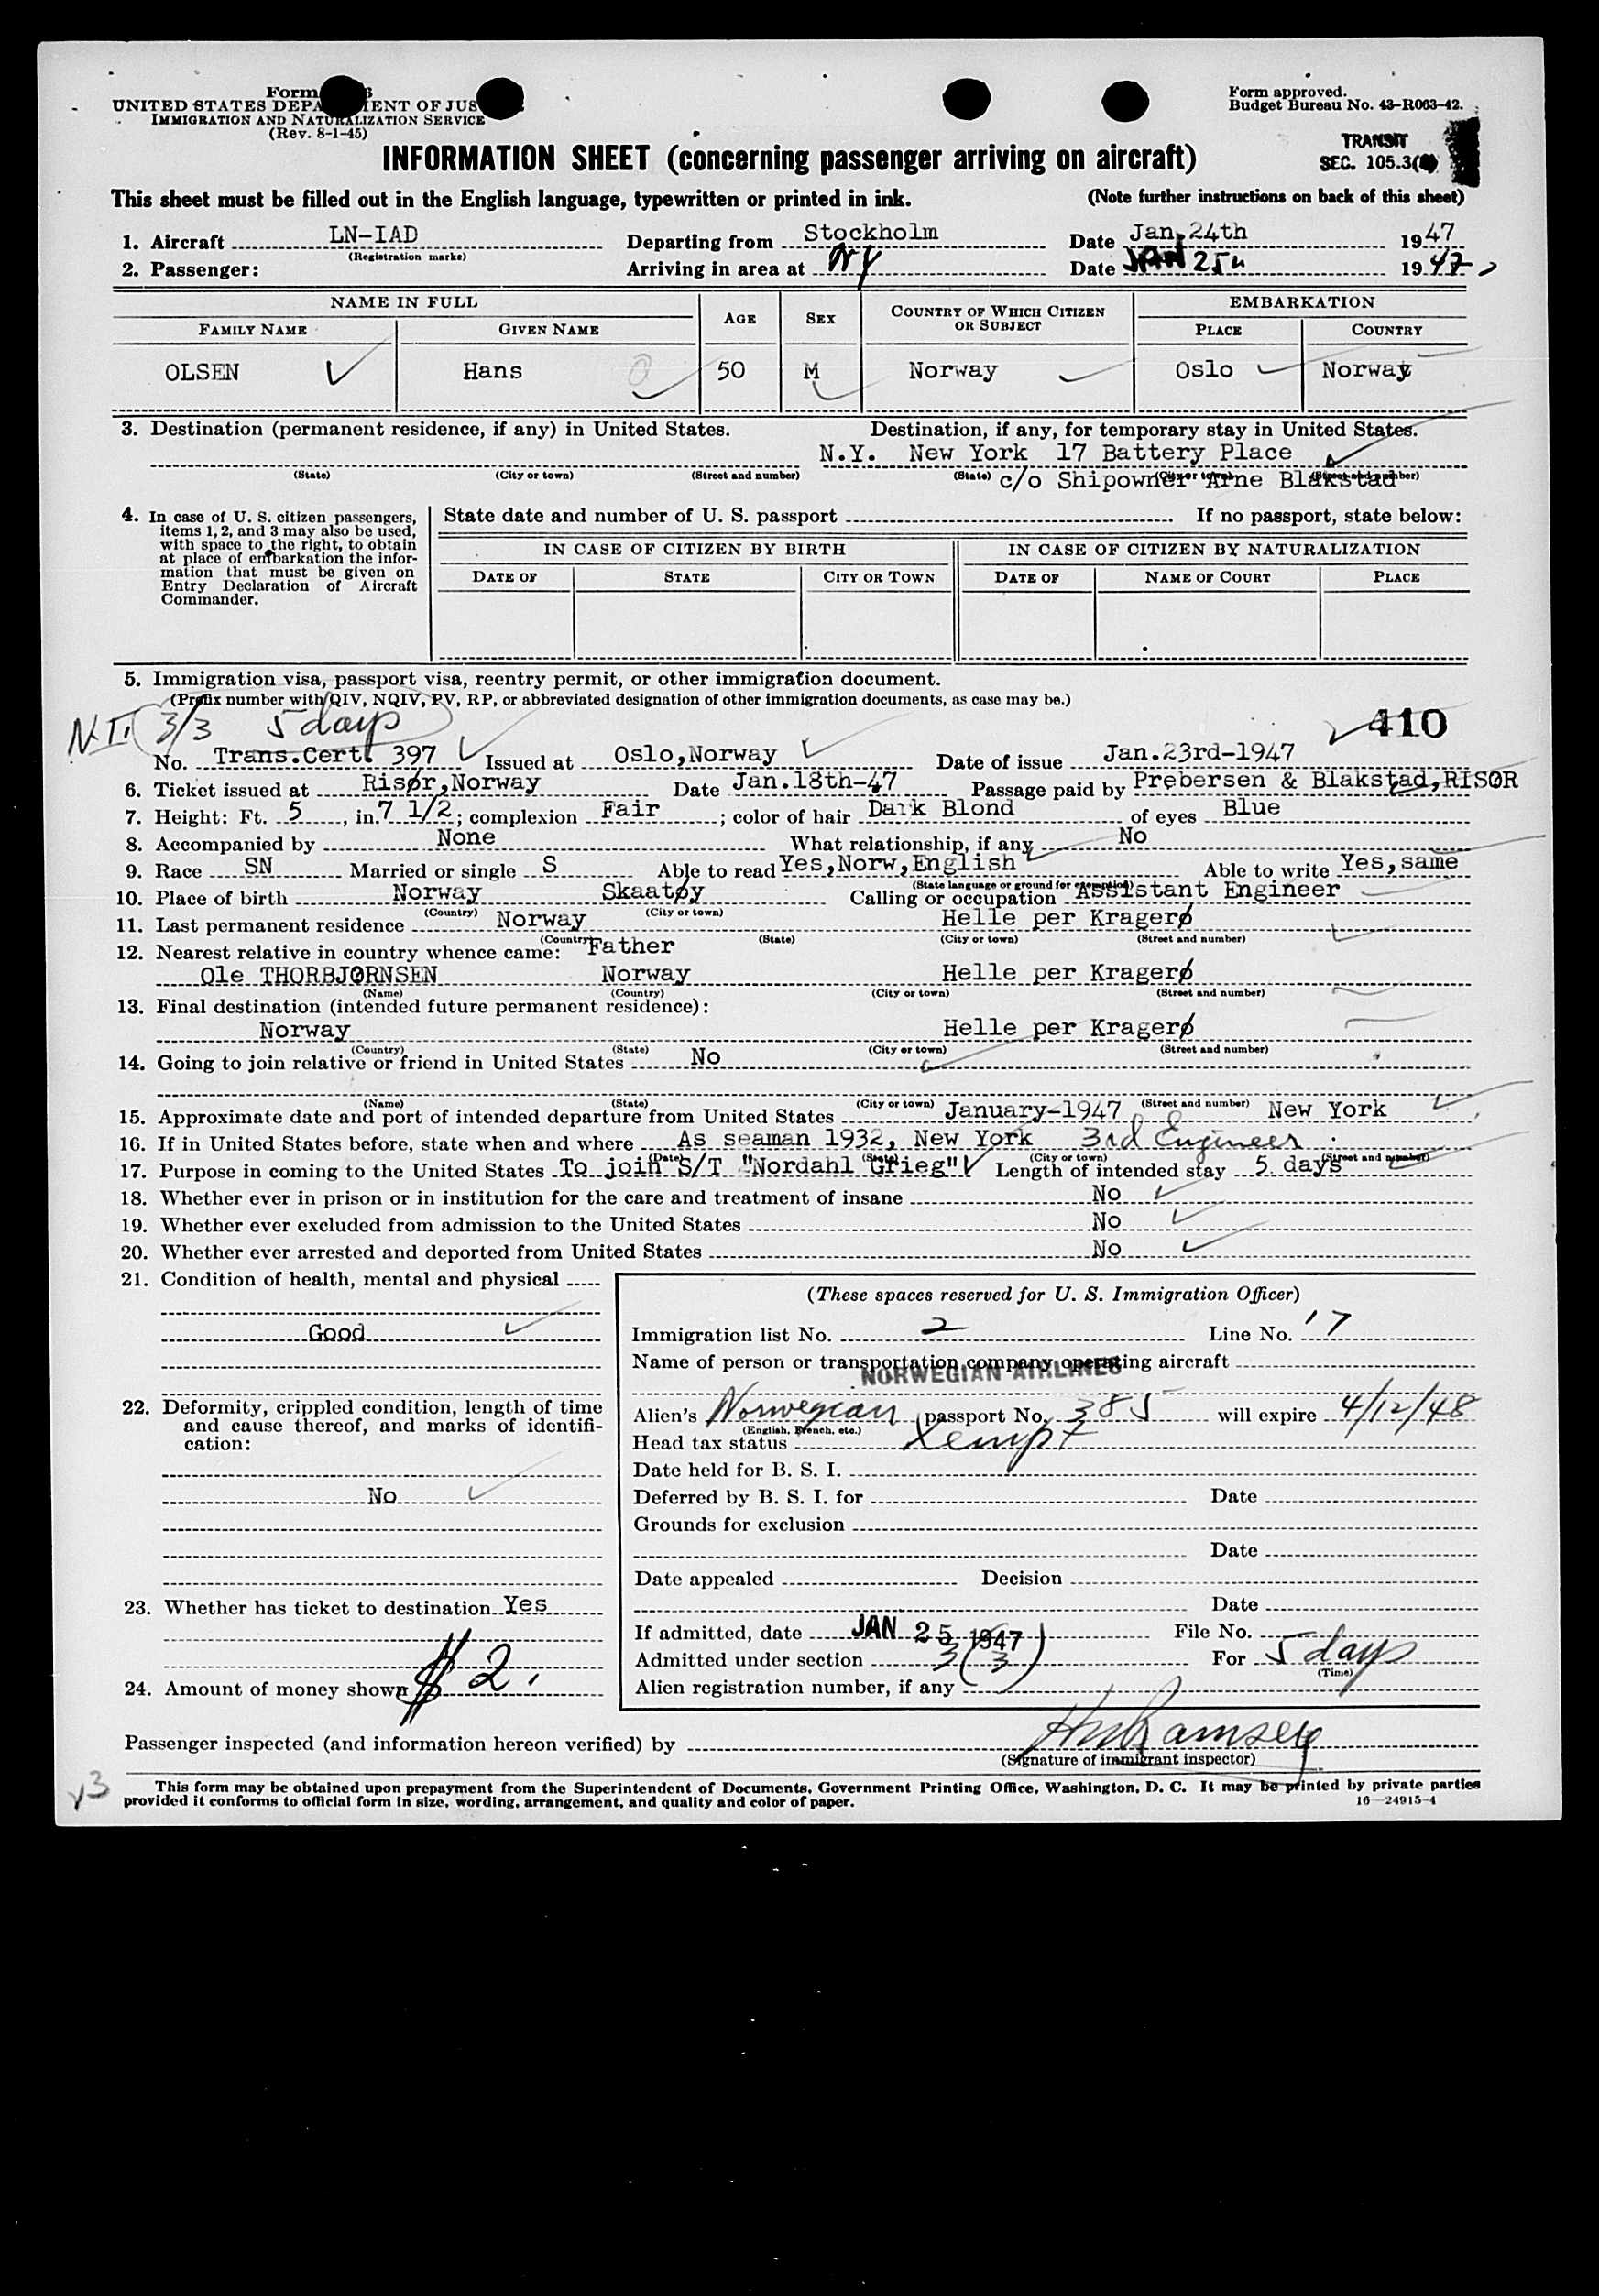 Form
UNITED STATES DEPA   ENT OF JUS
IMMIGRATION AND NATURALIZATION SERVICE
(Rev. 8-1-45)
Form approved.
Budget Bureau No. 43-R063-42.
TRANSIT
SEC. 105.3(
INFORMATION SHEET (concerning passenger arriving on aircraft)
This sheet must be filled out in the English language, typewritten or printed in ink. (Note further instructions on back of this sheet)
1. Aircraft LN-IAD Departing from Stockholm Date Jan.24th 1947
(Registration marks)
2. Passenger: Arriving in area at NY Date JAN 25 1947
NAME IN FULL AGE SEX COUNTRY OF WHICH CITIZEN OR SUBJECT EMBARKATION
FAMILY NAME GIVEN NAME PLACE COUNTRY
OLSEN Hans 50 M Norway Oslo Norway
3. Destination (permanent residence, if any) in United States. Destination, if any, for temporary stay in United States.
N.Y. New York 17 Battery Place
(State) (City or town) (Street and number) (State) (City or town) (Street and number)
c/o Shipowner Arne Blakstad
4. In case of U. S. citizen passengers, items 1, 2, and 3 may also be used, with space to the right, to obtain at place of embarkation the information that must be given on Entry Declaration of Aircraft Commander.
State date and number of U. S. passport If no passport, state below:
IN CASE OF CITIZEN BY BIRTH IN CASE OF CITIZEN BY NATURALIZATION
DATE OF STATE CITY OR TOWN DATE OF NAME OF COURT PLACE
5. Immigration visa, passport visa, reentry permit, or other immigration document.
(Prefix number with QIV, NQIV, PV, RP, or abbreviated designation of other immigration documents, as case may be.)
N.I. 3/3 5 days 410
No. Trans.Cert. 397 Issued at Oslo,Norway Date of issue Jan.23rd-1947
6. Ticket issued at Risør,Norway Date Jan.18th-47 Passage paid by Prebersen & Blakstad,RISØR
7. Height: Ft. 5, in. 7 1/2; complexion Fair; color of hair Dark Blond of eyes Blue
8. Accompanied by None What relationship, if any No
9. Race SN Married or single S Able to read Yes,Norw,English Able to write Yes,same
(State language or ground for exemption)
10. Place of birth Norway Skaatøy Calling or occupation Assistant Engineer
(Country) (City or town)
11. Last permanent residence Norway Helle per Kragerø
(Country) (State) (City or town) (Street and number)
12. Nearest relative in country whence came: Father
Ole THORBJØRNSEN Norway Helle per Kragerø
(Name) (Country) (City or town) (Street and number)
13. Final destination (intended future permanent residence):
Norway Helle per Kragerø
(Country) (State) (City or town) (Street and number)
14. Going to join relative or friend in United States No
(Name) (State) (City or town) (Street and number)
15. Approximate date and port of intended departure from United States January-1947 New York
16. If in United States before, state when and where As seaman 1932, New York 3rd Engineer
(Date) (State) (City or town) (Street and number)
17. Purpose in coming to the United States To join S/T "Nordahl Grieg" Length of intended stay 5 days
18. Whether ever in prison or in institution for the care and treatment of insane No
19. Whether ever excluded from admission to the United States No
20. Whether ever arrested and deported from United States No
21. Condition of health, mental and physical
Good
22. Deformity, crippled condition, length of time and cause thereof, and marks of identification:
No
23. Whether has ticket to destination Yes
24. Amount of money shown $ 2.
(These spaces reserved for U. S. Immigration Officer)
Immigration list No. 2 Line No. 17
Name of person or transportation company operating aircraft
NORWEGIAN AIRLINES
Alien's Norwegian passport No. 385 will expire 4/12/48
(English, French, etc.)
Head tax status Xempt
Date held for B. S. I.
Deferred by B. S. I. for Date
Grounds for exclusion
Date
Date appealed Decision
Date
If admitted, date JAN 25 1947 File No.
Admitted under section 3(3) For 5 days
(Time)
Alien registration number, if any
Passenger inspected (and information hereon verified) by Ramsey
(Signature of immigrant inspector)
This form may be obtained upon prepayment from the Superintendent of Documents, Government Printing Office, Washington, D. C. It may be printed by private parties
provided it conforms to official form in size, wording, arrangement, and quality and color of paper. 16—24915-4